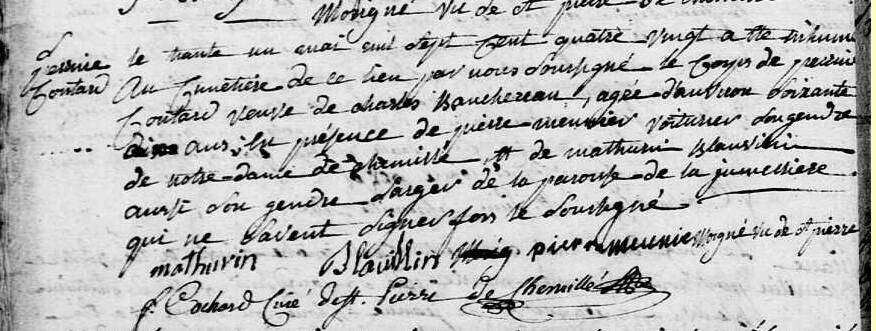 Morigné vic de st pierre de chemillé
d
perrine le trante un mai mil sept cent quatre vingt a ete inhumé
Contard Au Cimetière de ce lieu par nous soussigné le corps de perrine
Contard veuve de charles Banchereau, agée d'anviron soixante
ans, en présence de pierre meunier voiturier son gendre
de notre dame de chemillé, et de mathurin Blauillin
aussi son gendre sarger de la paroisse de la jumelliere
qui ne savent signer fors le soussigné
mathurin Blauillin pierre meunier Morigné vic de st pierre
f. Cochard Curé de st. Pierre de Chemillé